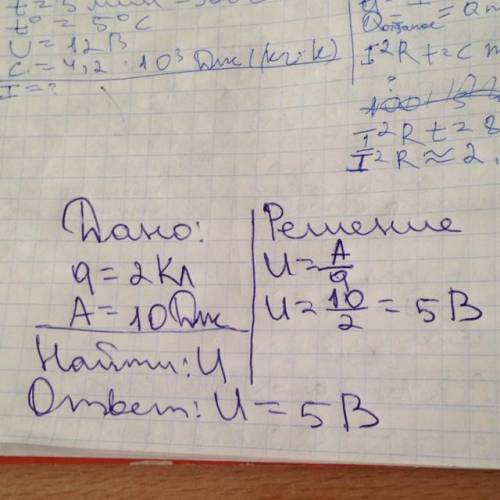 t° = 5°C
U = 12 В
c = 4,2 · 10³ Дж/(кг·К)
I = ?
I²Rt = c m
I²Rt = 8
I²R ≈ 2,
Дано:
q = 2 Кл
A = 10 Дж
Найти: U
Решение
U = A/q
U = 10/2 = 5 В
Ответ: U = 5 В